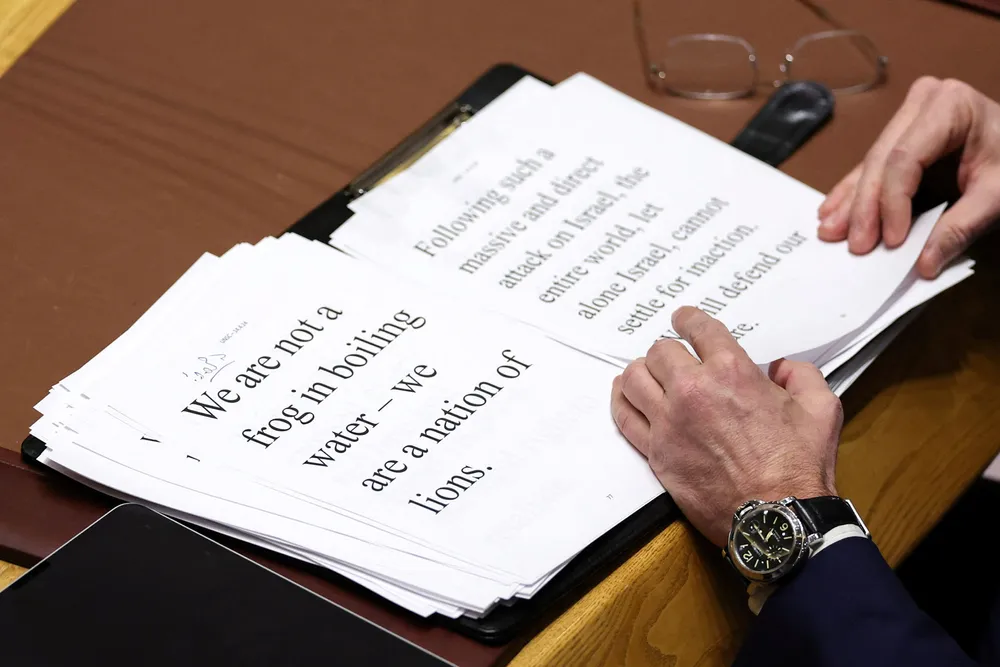 We are not a
frog in boiling
water – we
are a nation of
lions.
Following such a
massive and direct
attack on Israel, the
entire world, let
alone Israel, cannot
settle for inaction.
defend our
12
6